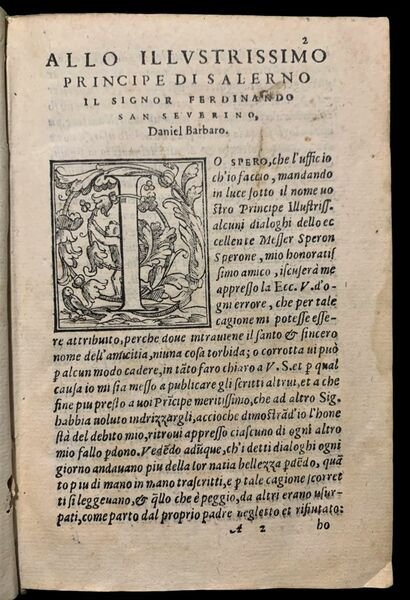 2
ALLO ILLVSTRISSIMO
PRINCIPE DI SALERNO
IL SIGNOR FERDINANDO
SAN SEVERINO,
Daniel Barbaro.
IO SPERO, che l'ufficio
ch'io faccio, mandando
in luce sotto il nome uo
stro Principe Illustriss.
alcuni dialoghi dello ec
cellente Messer Speron
Sperone, mio honoratis
simo amico, iscuserà me
appresso la Ecc. V. d'o-
gni errore, che per tale
cagione mi potesse esse-
re attribuito, perche doue intrauiene il santo & sincero
nome dell'amicitia, niuna cosa torbida; o corrotta ui può
p alcun modo cadere, in tãto faro chiaro a V. S. et p qual
causa io mi sia messo a publicare gli scritti altrui, et a che
fine piu presto a uoi Prĩcipe meritissimo, che ad altro Sig.
habbia uoluto indrizzargli, accioche dimostrãd'io l'hone
stà del debito mio, ritroui appresso ciascuno di ogni altro
mio fallo pdono. Vedẽdo adũque, ch'i detti dialoghi ogni
giorno andauano piu della lor natia bellezza pdẽdo, quã
to piu di mano in mano trascritti, e p tale cagione scorret
ti si leggeuano, & qllo che è peggio, da altri erano usur-
pati, come parto dal proprio padre negletto et rifiutato:
A 2 ho